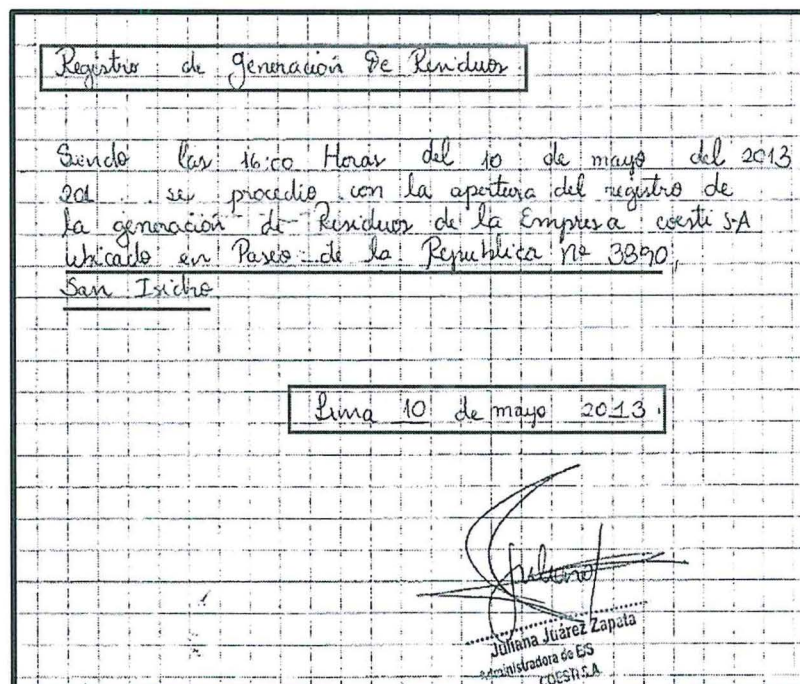 Registro de generación De Residuos
Siendo las 16:00 Horas del 10 de mayo del 2013
201 se procedio con la apertura del registro de
la generación de Residuos de la Empresa coesti S.A
ubicado en Paseo de la Republica Nº 3890,
San Isidro
Lima 10 de mayo 2013.
Juliana J
Juliana Juárez Zapata
Administradora de E/S
COESTI S.A.